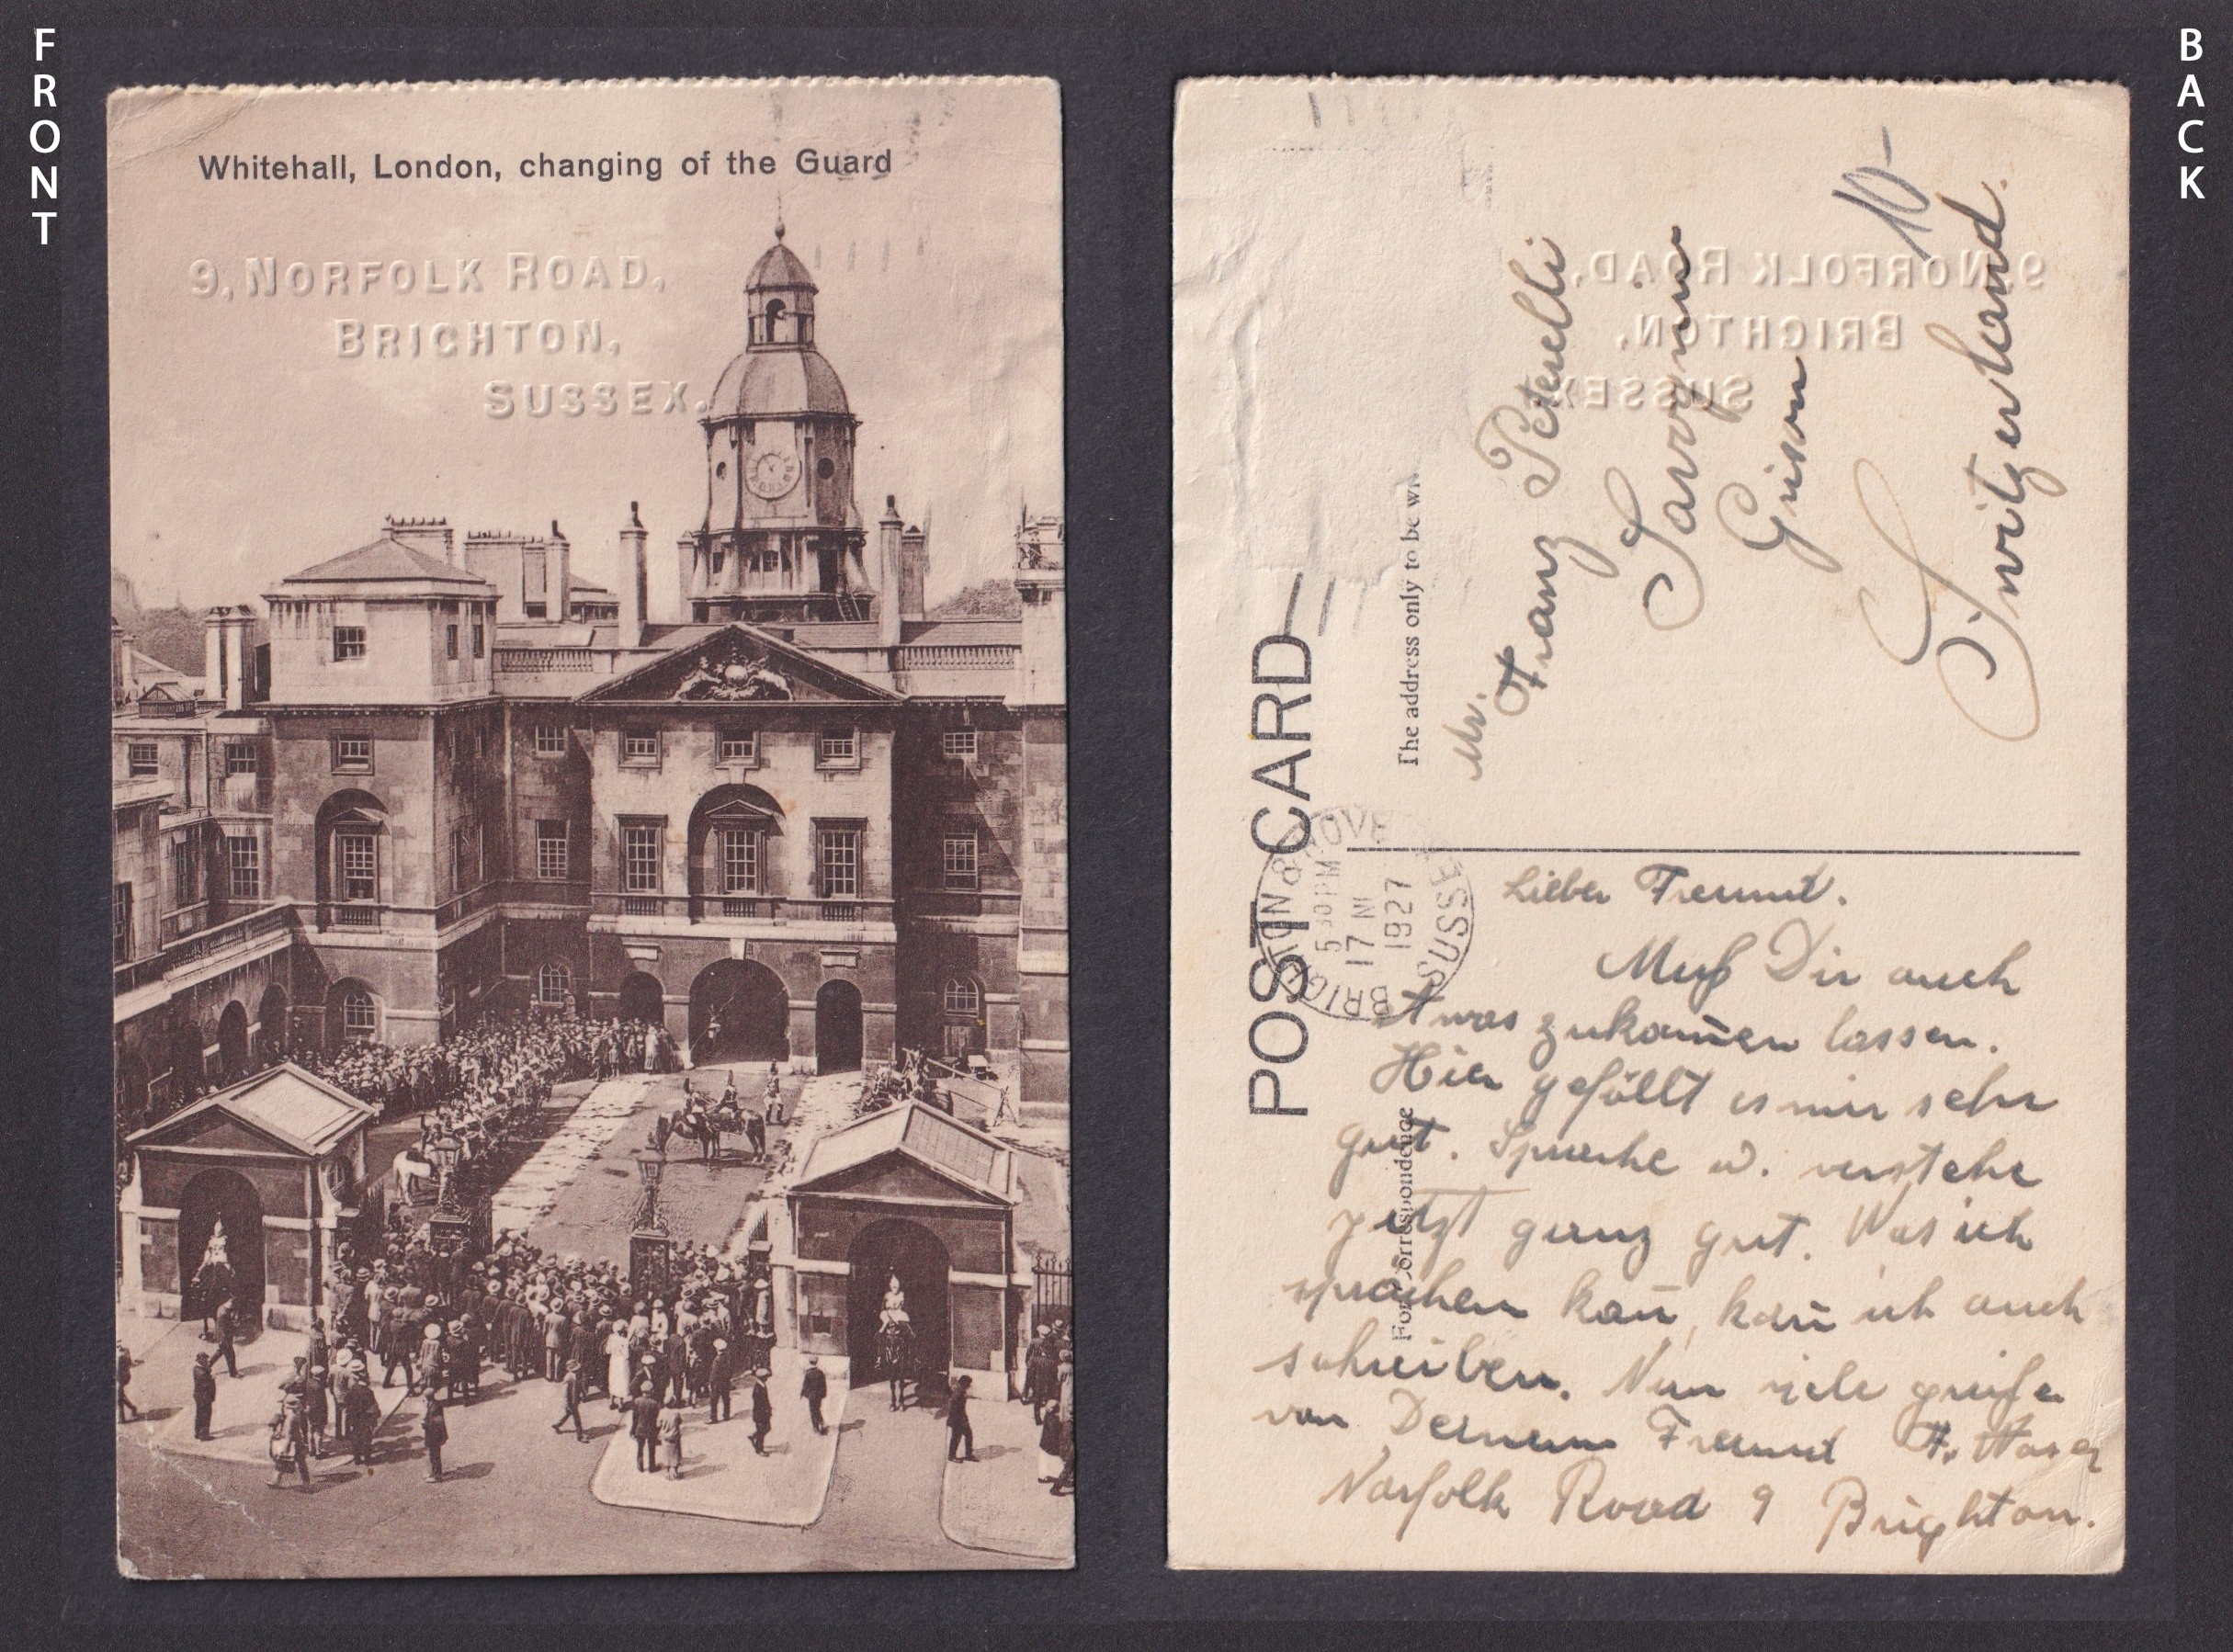 FRONT
Whitehall, London, changing of the Guard
9, NORFOLK ROAD,
BRIGHTON,
SUSSEX.
BACK
POST CARD
The address only to be
For correspondence
BRIGHTON & HOVE
5 30 PM
17 NO
1927
SUSSEX
10-
Mr.
Franz Peterelli
Savognin
Grison
Switzerland.
9, NORFOLK ROAD,
BRIGHTON,
SUSSEX
Lieber Freund.
Muß Dir auch
etwas zukom̄en lassen.
Hier gefällt es mir sehr
gut. Spreche u. verstehe
jetzt ganz gut. Was ich
sprechen kan̄, kan̄ ich auch
schreiben. Nun viele grüße
von Deinem Freund F.
Norfolk Road 9 Brighton.